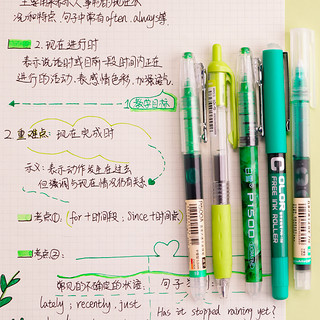 况和特点 句子中常有often. always等
2. 现在进行时
表示说话时或目前一段时间内正在
进行的活动. 表感情色彩, 加强语气
教学目标
2. 重难点: 现在完成时
示义: 表示动作发生在过去
但强调与现在情况仍有关系
考点①: (for+时间段; since+时间点)
考点②:
常见的不确定的状语
句子
lately; recently. just
Has it stopped raining yet?
P1500
COLOR
FREE INK ROLLER